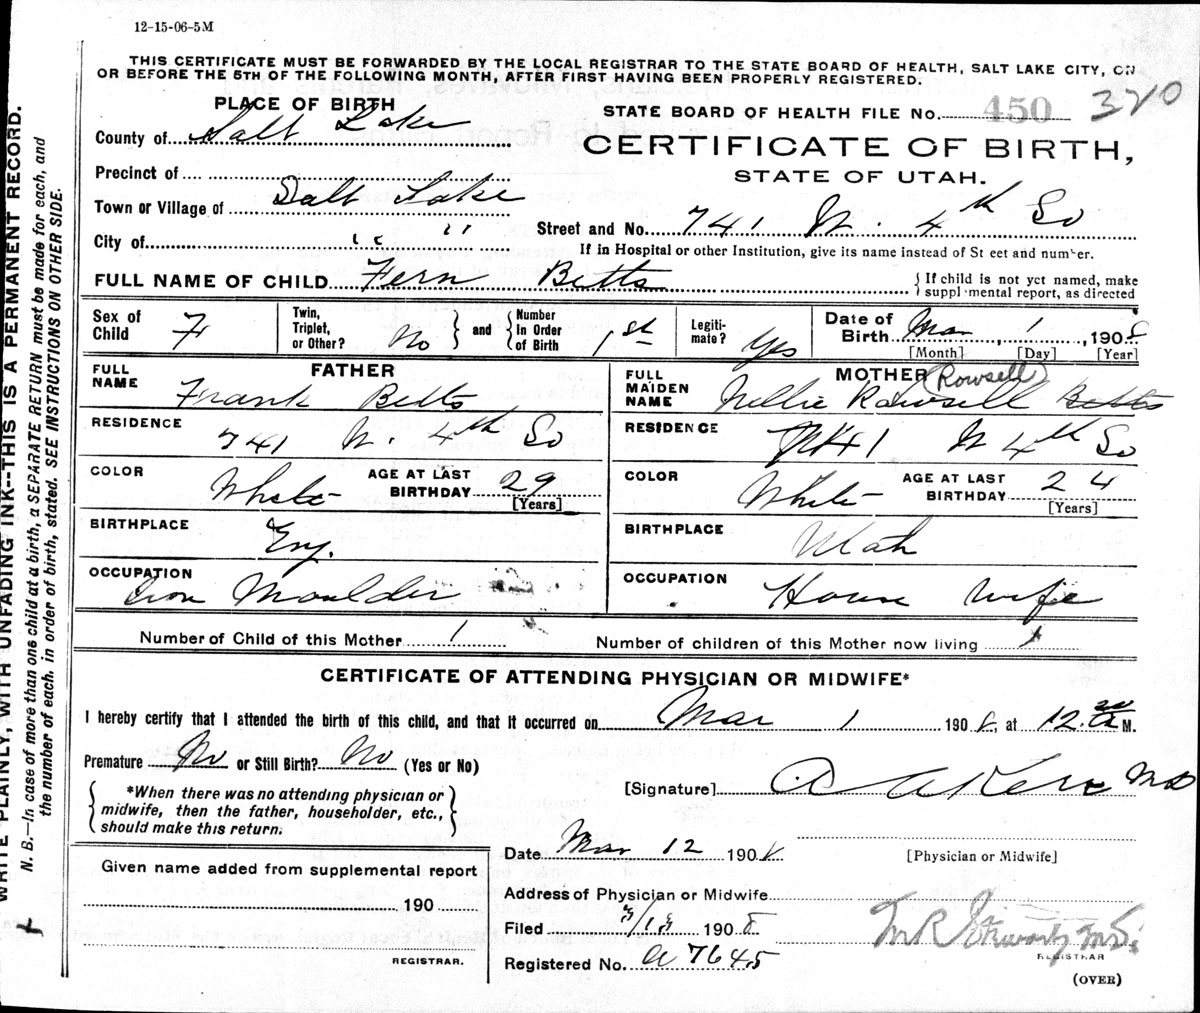 12-15-06-5M
THIS CERTIFICATE MUST BE FORWARDED BY THE LOCAL REGISTRAR TO THE STATE BOARD OF HEALTH, SALT LAKE CITY, ON
OR BEFORE THE 5TH OF THE FOLLOWING MONTH, AFTER FIRST HAVING BEEN PROPERLY REGISTERED.
PLACE OF BIRTH
STATE BOARD OF HEALTH FILE No. 450 320
County of Salt Lake
CERTIFICATE OF BIRTH,
STATE OF UTAH.
Precinct of
Town or Village of Salt Lake
Street and No. 741 W. 4th So
City of " "
If in Hospital or other Institution, give its name instead of St eet and number.
FULL NAME OF CHILD Fern Betts
{ If child is not yet named, make
supplemental report, as directed
Sex of Child F
Twin, Triplet, or Other? No } and { Number In Order of Birth 1st
Legitimate? Yes
Date of Birth Mar 1, 1908
[Month] [Day] [Year]
FATHER
FULL NAME Frank Betts
MOTHER (Rowsell)
FULL MAIDEN NAME Nellie Rowsell Betts
RESIDENCE 741 W. 4th So
RESIDENCE 741 W 4th So
COLOR White AGE AT LAST BIRTHDAY 29 [Years]
COLOR White AGE AT LAST BIRTHDAY 24 [Years]
BIRTHPLACE Eng.
BIRTHPLACE Utah
OCCUPATION Iron Moulder
OCCUPATION House wife
Number of Child of this Mother 1
Number of children of this Mother now living 1
CERTIFICATE OF ATTENDING PHYSICIAN OR MIDWIFE*
I hereby certify that I attended the birth of this child, and that it occurred on Mar 1 1908, at 12.30 A M.
Premature No or Still Birth? No (Yes or No)
{ *When there was no attending physician or
midwife, then the father, householder, etc.,
should make this return. }
[Signature] MD
Date Mar 12 1908
[Physician or Midwife]
Given name added from supplemental report
190
REGISTRAR.
Address of Physician or Midwife
Filed 3/13 1908
Registered No. a 7645
REGISTRAR
(OVER)
WRITE PLAINLY, WITH UNFADING INK--THIS IS A PERMANENT RECORD.
N. B.—In case of more than one child at a birth, a SEPARATE RETURN must be made for each, and
the number of each, in order of birth, stated. SEE INSTRUCTIONS ON OTHER SIDE.